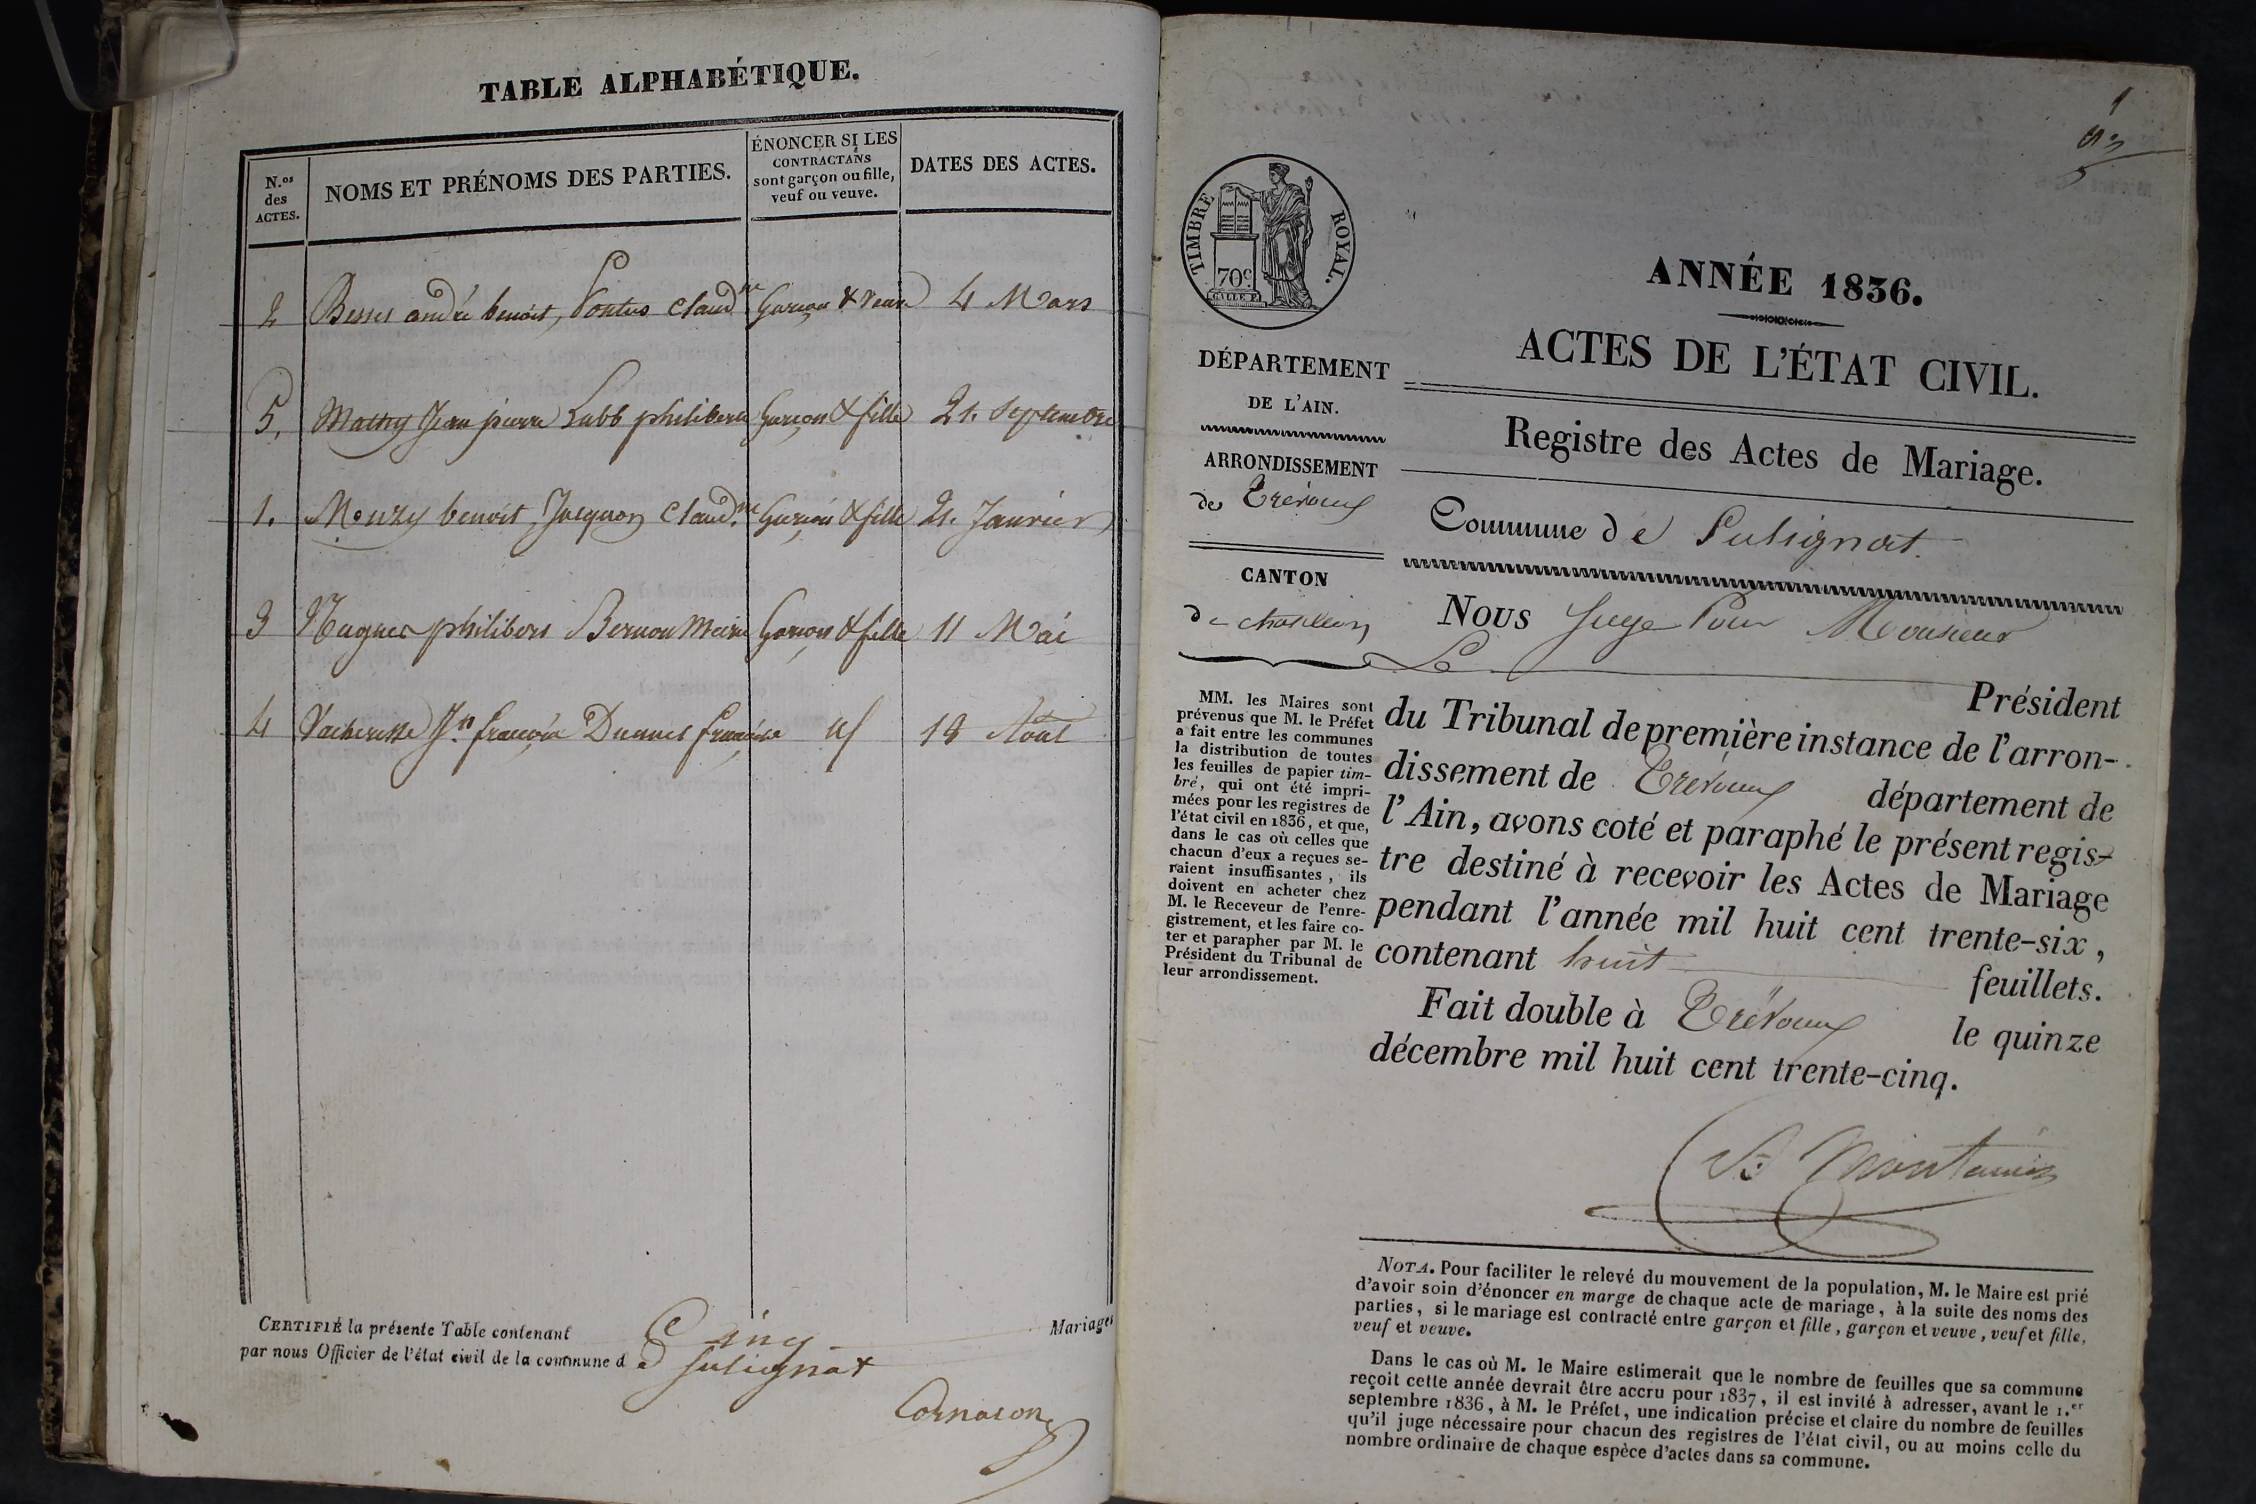 TABLE ALPHABÉTIQUE.
N.os des ACTES.
NOMS ET PRÉNOMS DES PARTIES.
ÉNONCER SI LES CONTRACTANS sont garçon ou fille, veuf ou veuve.
DATES DES ACTES.
2 Besses andré benoit, Pontus Claud.ne Garçon & veuve 4 Mars
5. Mathy Jean pierre Labb philiberte Garçon & fille 21. Septembre
1. Mouzy benoit, Jacquon Claud.ne Garçon & fille 21. Janvier
3 Philibert Bernou Garçon & fille 11 Mai
4 Vacheresse Jn. françois françoise id 18 Aout
CERTIFIÉ la présente Table contenant Cinq Mariages
par nous Officier de l'état civil de la commune d e Sulignat
Cornaton
1
TIMBRE ROYAL.
70c
ANNÉE 1836.
ACTES DE L'ÉTAT CIVIL.
Registre des Actes de Mariage.
Commune de Sulignat.
DÉPARTEMENT
DE L'AIN.
ARRONDISSEMENT
de Trévoux
CANTON
de Chatillon
MM. les Maires sont
prévenus que M. le Préfet
a fait entre les communes
la distribution de toutes
les feuilles de papier tim-
bré, qui ont été impri-
mées pour les registres de
l'état civil en 1836, et que,
dans le cas où celles que
chacun d'eux a reçues se-
raient insuffisantes, ils
doivent en acheter chez
M. le Receveur de l'enre-
gistrement, et les faire co-
ter et parapher par M. le
Président du Tribunal de
leur arrondissement.
Nous Juge Pour Monsieur
Le Président
du Tribunal de première instance de l'arron-
dissement de Trévoux département de
l'Ain, avons coté et paraphé le présent regis-
tre destiné à recevoir les Actes de Mariage
pendant l'année mil huit cent trente-six,
contenant huit feuillets.
Fait double à Trévoux le quinze
décembre mil huit cent trente-cinq.
NOTA. Pour faciliter le relevé du mouvement de la population, M. le Maire est prié
d'avoir soin d'énoncer en marge de chaque acte de mariage, à la suite des noms des
parties, si le mariage est contracté entre garçon et fille, garçon et veuve, veuf et fille,
veuf et veuve.
Dans le cas où M. le Maire estimerait que le nombre de feuilles que sa commune
reçoit cette année devrait être accru pour 1837, il est invité à adresser, avant le 1.er
septembre 1836, à M. le Préfet, une indication précise et claire du nombre de feuilles
qu'il juge nécessaire pour chacun des registres de l'état civil, ou au moins celle du
nombre ordinaire de chaque espèce d'actes dans sa commune.